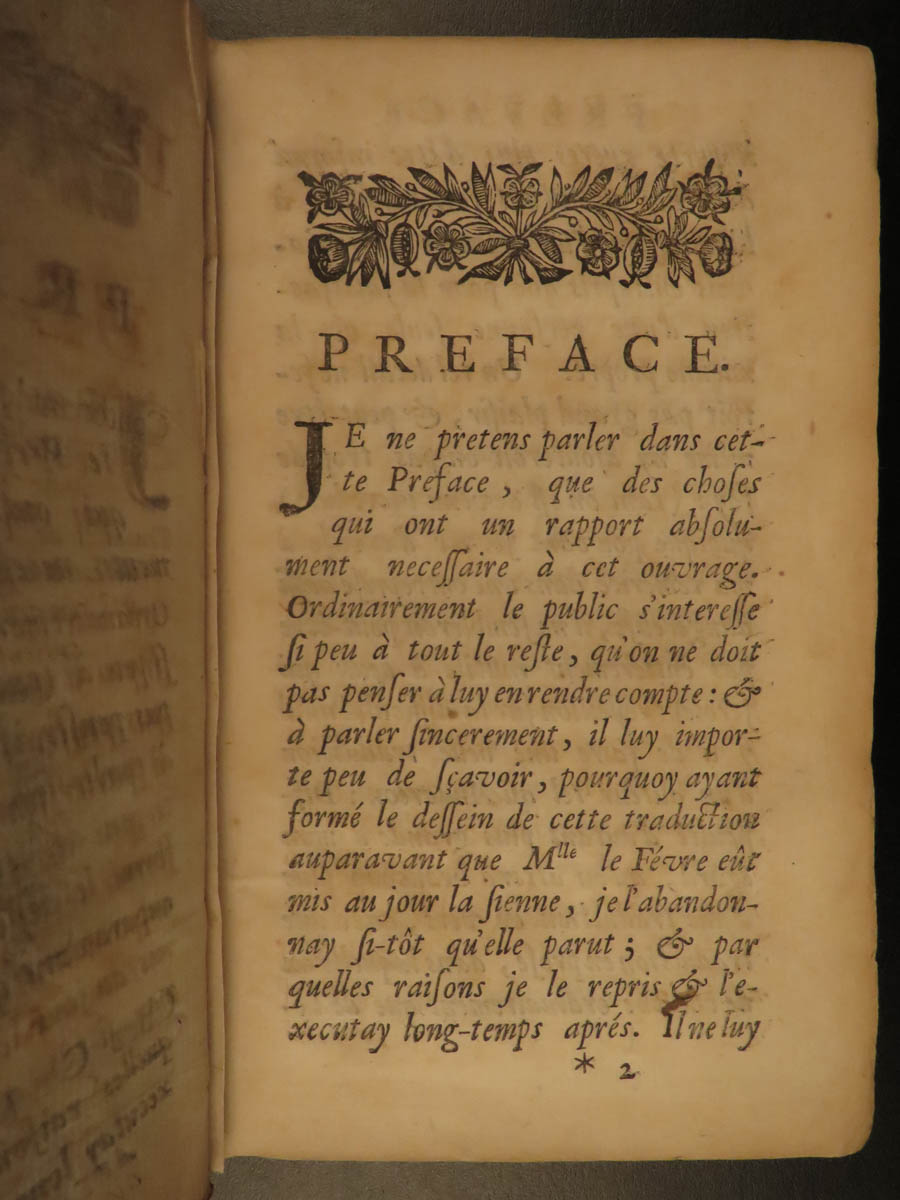 PREFACE.
JE ne pretens parler dans cet-
te Preface, que des choses
qui ont un rapport absolu-
ment necessaire à cet ouvrage.
Ordinairement le public s'interesse
si peu à tout le reste, qu'on ne doit
pas penser à luy en rendre compte: &
à parler sincerement, il luy impor-
te peu de sçavoir, pourquoy ayant
formé le dessein de cette traduction
auparavant que Mlle le Févre eût
mis au jour la sienne, je l'abandon-
nay si-tôt qu'elle parut; & par
quelles raisons je le repris & l'e-
xecutay long-temps aprés. Il ne luy
* 2